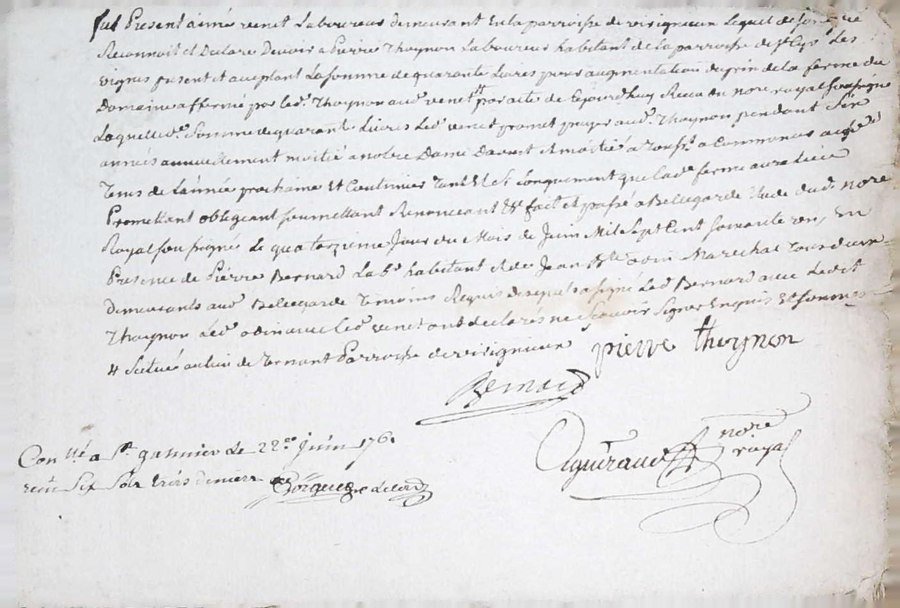 fut Present aimé venet Laboureur demeurant En la parroisse de visigneux Lequel de son gré
Reconnoit et Declare Devoir a Pierre Thoynon Laboureur habitant de la parroisse de St Cyr Les
vignes present et acceptant La somme de quarante Livres pour augmentation du prix de la ferme du
Domaine affermé par led. Thoynon aud. venet par acte de Cejourdhuy Recu du nore royal soussigné
Laquelle d. somme de quarante Livres Led. venet promet payer aud. Thoynon pendant Six
années annuellement moitié a notre Dame Davout et moitié a a Commencer
tems de Lannée prochaine Et Continuer tant Et si Longuement que lad. ferme aura Lieu
Promettant obligeant soumettant Renonceant &c fait et passé a Bellegarde Etude dud. nore
Royal soussigné Le quatorzieme Jour du Mois de Juin Mil Sept Cent soixante en
Presence de Pierre Bernard Lab. habitant et de Jean odin Marechal
demeurants aud. Bellegarde temoins Requis desquels a signé Led. Bernard avec Ledit
Thoynon Led. odin avec Led. venet ont declarés ne Scavoir Signer Enquis Et sommés
4 Scitué au lieu de Parroisse de visigneux pierre thoynon
Bernard
Con llé a St garmier le 22e Juin 176
recu Six Sols trois deniers
guiraud nore
royal